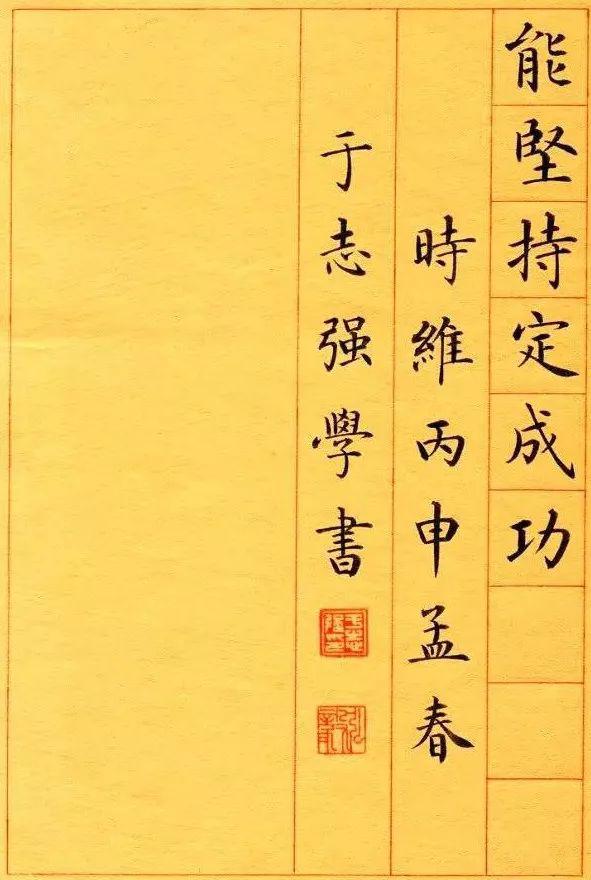 能堅持定成功
時維丙申孟春
于志强學書